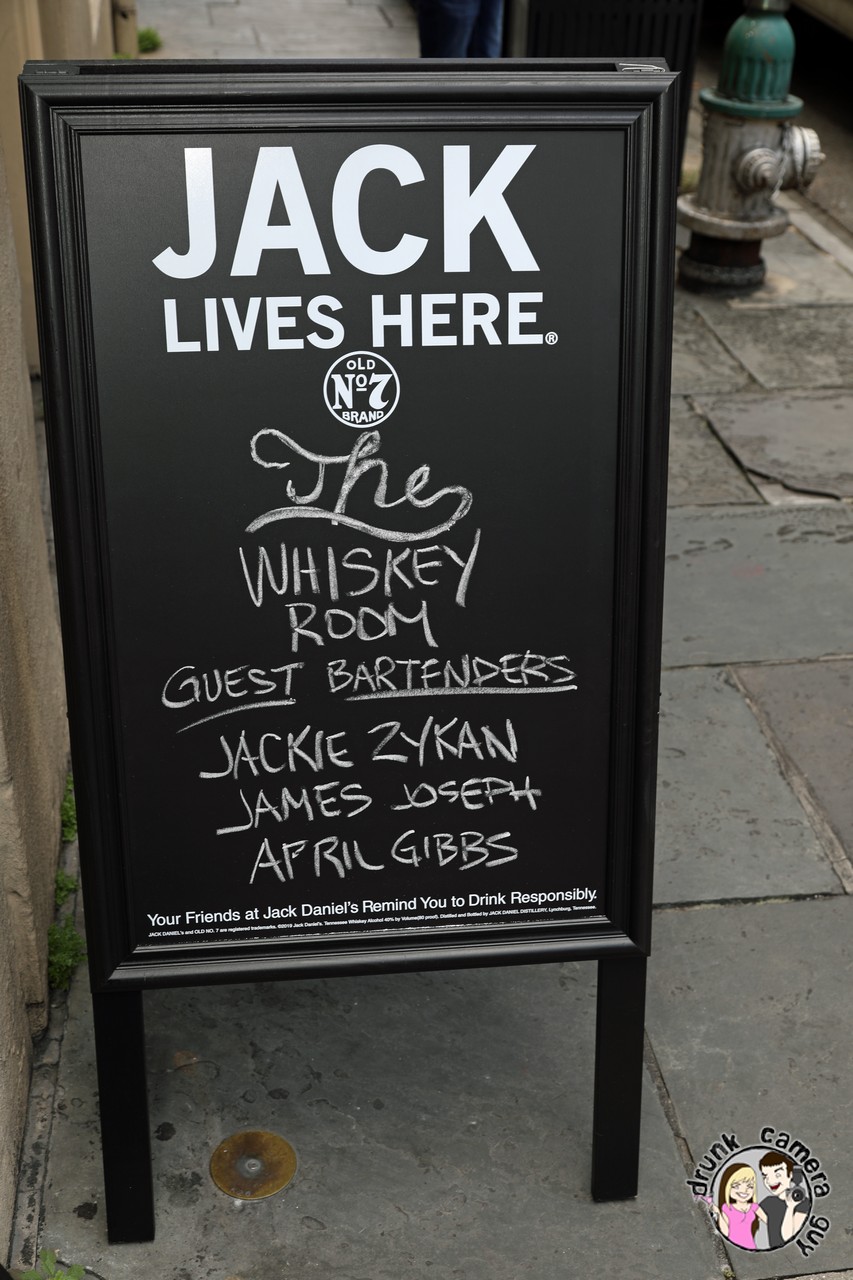 JACK
LIVES HERE®
OLD
Nº7
BRAND
The
WHISKEY
ROOM
GUEST BARTENDERS
JACKIE ZYKAN
JAMES JOSEPH
APRIL GIBBS
Your Friends at Jack Daniel's Remind You to Drink Responsibly.
JACK DANIEL's and OLD NO. 7 are registered trademarks. ©2019 Jack Daniel's. Tennessee Whiskey Alcohol 40% by Volume(80 proof). Distilled and Bottled by JACK DANIEL DISTILLERY, Lynchburg, Tennessee.
drunk camera guy